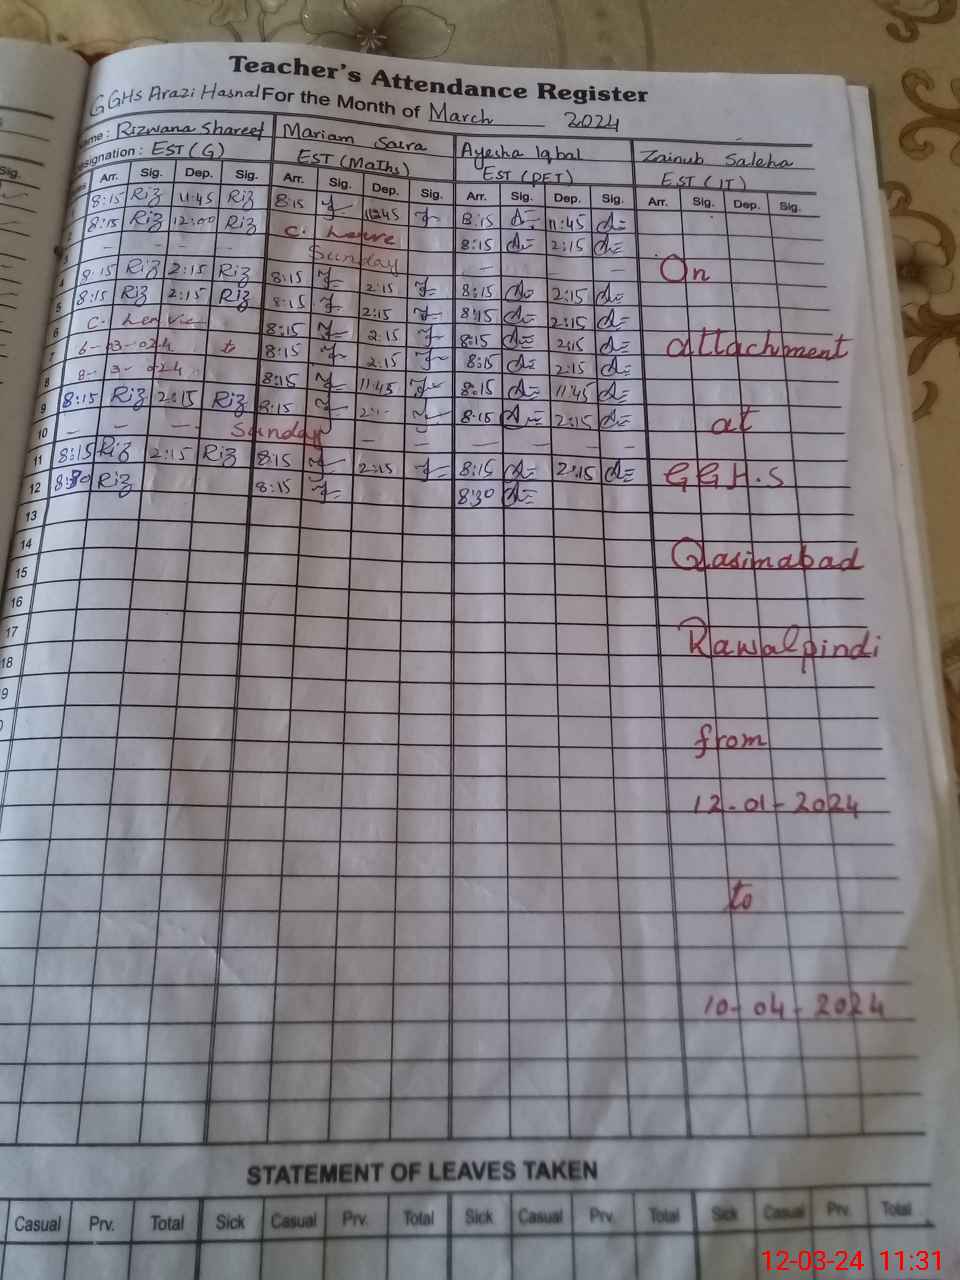 Teacher's Attendance Register
GGHS Arazi Hasnal For the Month of March 2024
ame: Rizwana Shareef Mariam Saira Ayesha Iqbal Zainub Saleha
esignation: EST (G) EST (Maths) EST (PET) EST (IT)
Arr. Sig. Dep. Sig. Arr. Sig. Dep. Sig. Arr. Sig. Dep. Sig. Arr. Sig. Dep. Sig.
8:15 Riz 11:45 Riz 8:15 11:45 8:15 11:45
8:15 Riz 12:00 Riz C. Leave 8:15 2:15
3 - - - - Sunday - - -
4 8:15 Riz 2:15 Riz 8:15 2:15 8:15 2:15
5 8:15 Riz 2:15 Riz 8:15 2:15 8:15 2:15
6 C. 8:15 2:15 8:15 2:15
7 6-03-024 to 8:15 2:15 8:15 2:15
8 8-3-024 8:15 11:45 8:15 11:45
9 8:15 Riz 2:15 Riz 8:15 8:15 2:15
10 - - - Sunday - - - - - -
11 8:15 Riz 2:15 Riz 8:15 2:15 8:15 2:15
12 8:30 Riz 8:15 8:30
13
14
15
16
17
18
9
On
attachment
at
GGH.S
Qasimabad
Rawalpindi
from
12-01-2024
to
10-04-2024
STATEMENT OF LEAVES TAKEN
Casual Prv. Total Sick Casual Prv. Total Sick Casual Prv. Total Sick Casual Prv. Total
12-03-24 11:31